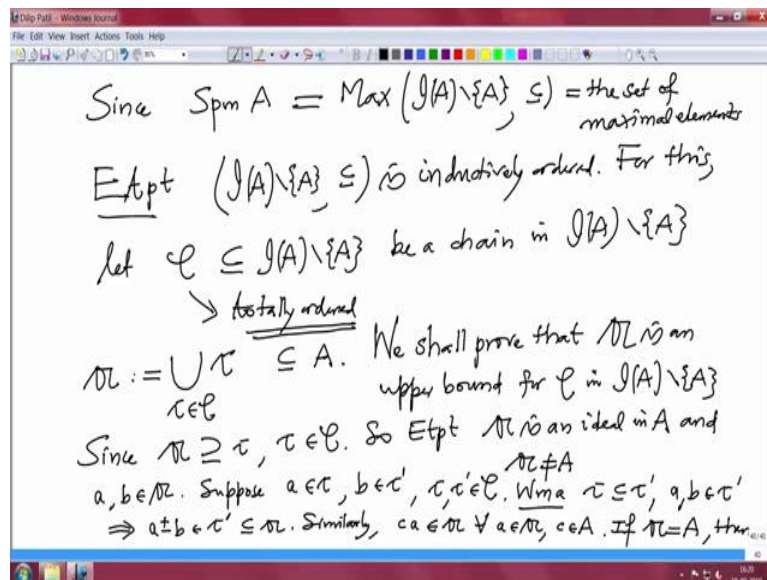 Dilip Patil - Windows Journal
File Edit View Insert Actions Tools Help
Since Spm A = Max (𝓘(A)\{A}, ⊆) = the set of
maximal elements
EtPt (𝓘(A)\{A}, ⊆) is inductively ordered. For this,
let 𝒞 ⊆ 𝓘(A)\{A} be a chain in 𝓘(A)\{A}
↘ totally ordered
𝔞 := ⋃ 𝔠 ⊆ A. We shall prove that 𝔞 is an
𝔠∈𝒞 upper bound for 𝒞 in 𝓘(A)\{A}
Since 𝔞 ⊇ 𝔠, 𝔠∈𝒞. So Etpt 𝔞 is an ideal in A and
𝔞≠A
a, b∈𝔞. Suppose a∈𝔠, b∈𝔠', 𝔠,𝔠'∈𝒞. Wma 𝔠⊆𝔠', a,b∈𝔠'
⇒ a±b∈𝔠' ⊆ 𝔞. Similarly, ca∈𝔞 ∀ a∈𝔞, c∈A. If 𝔞=A, then